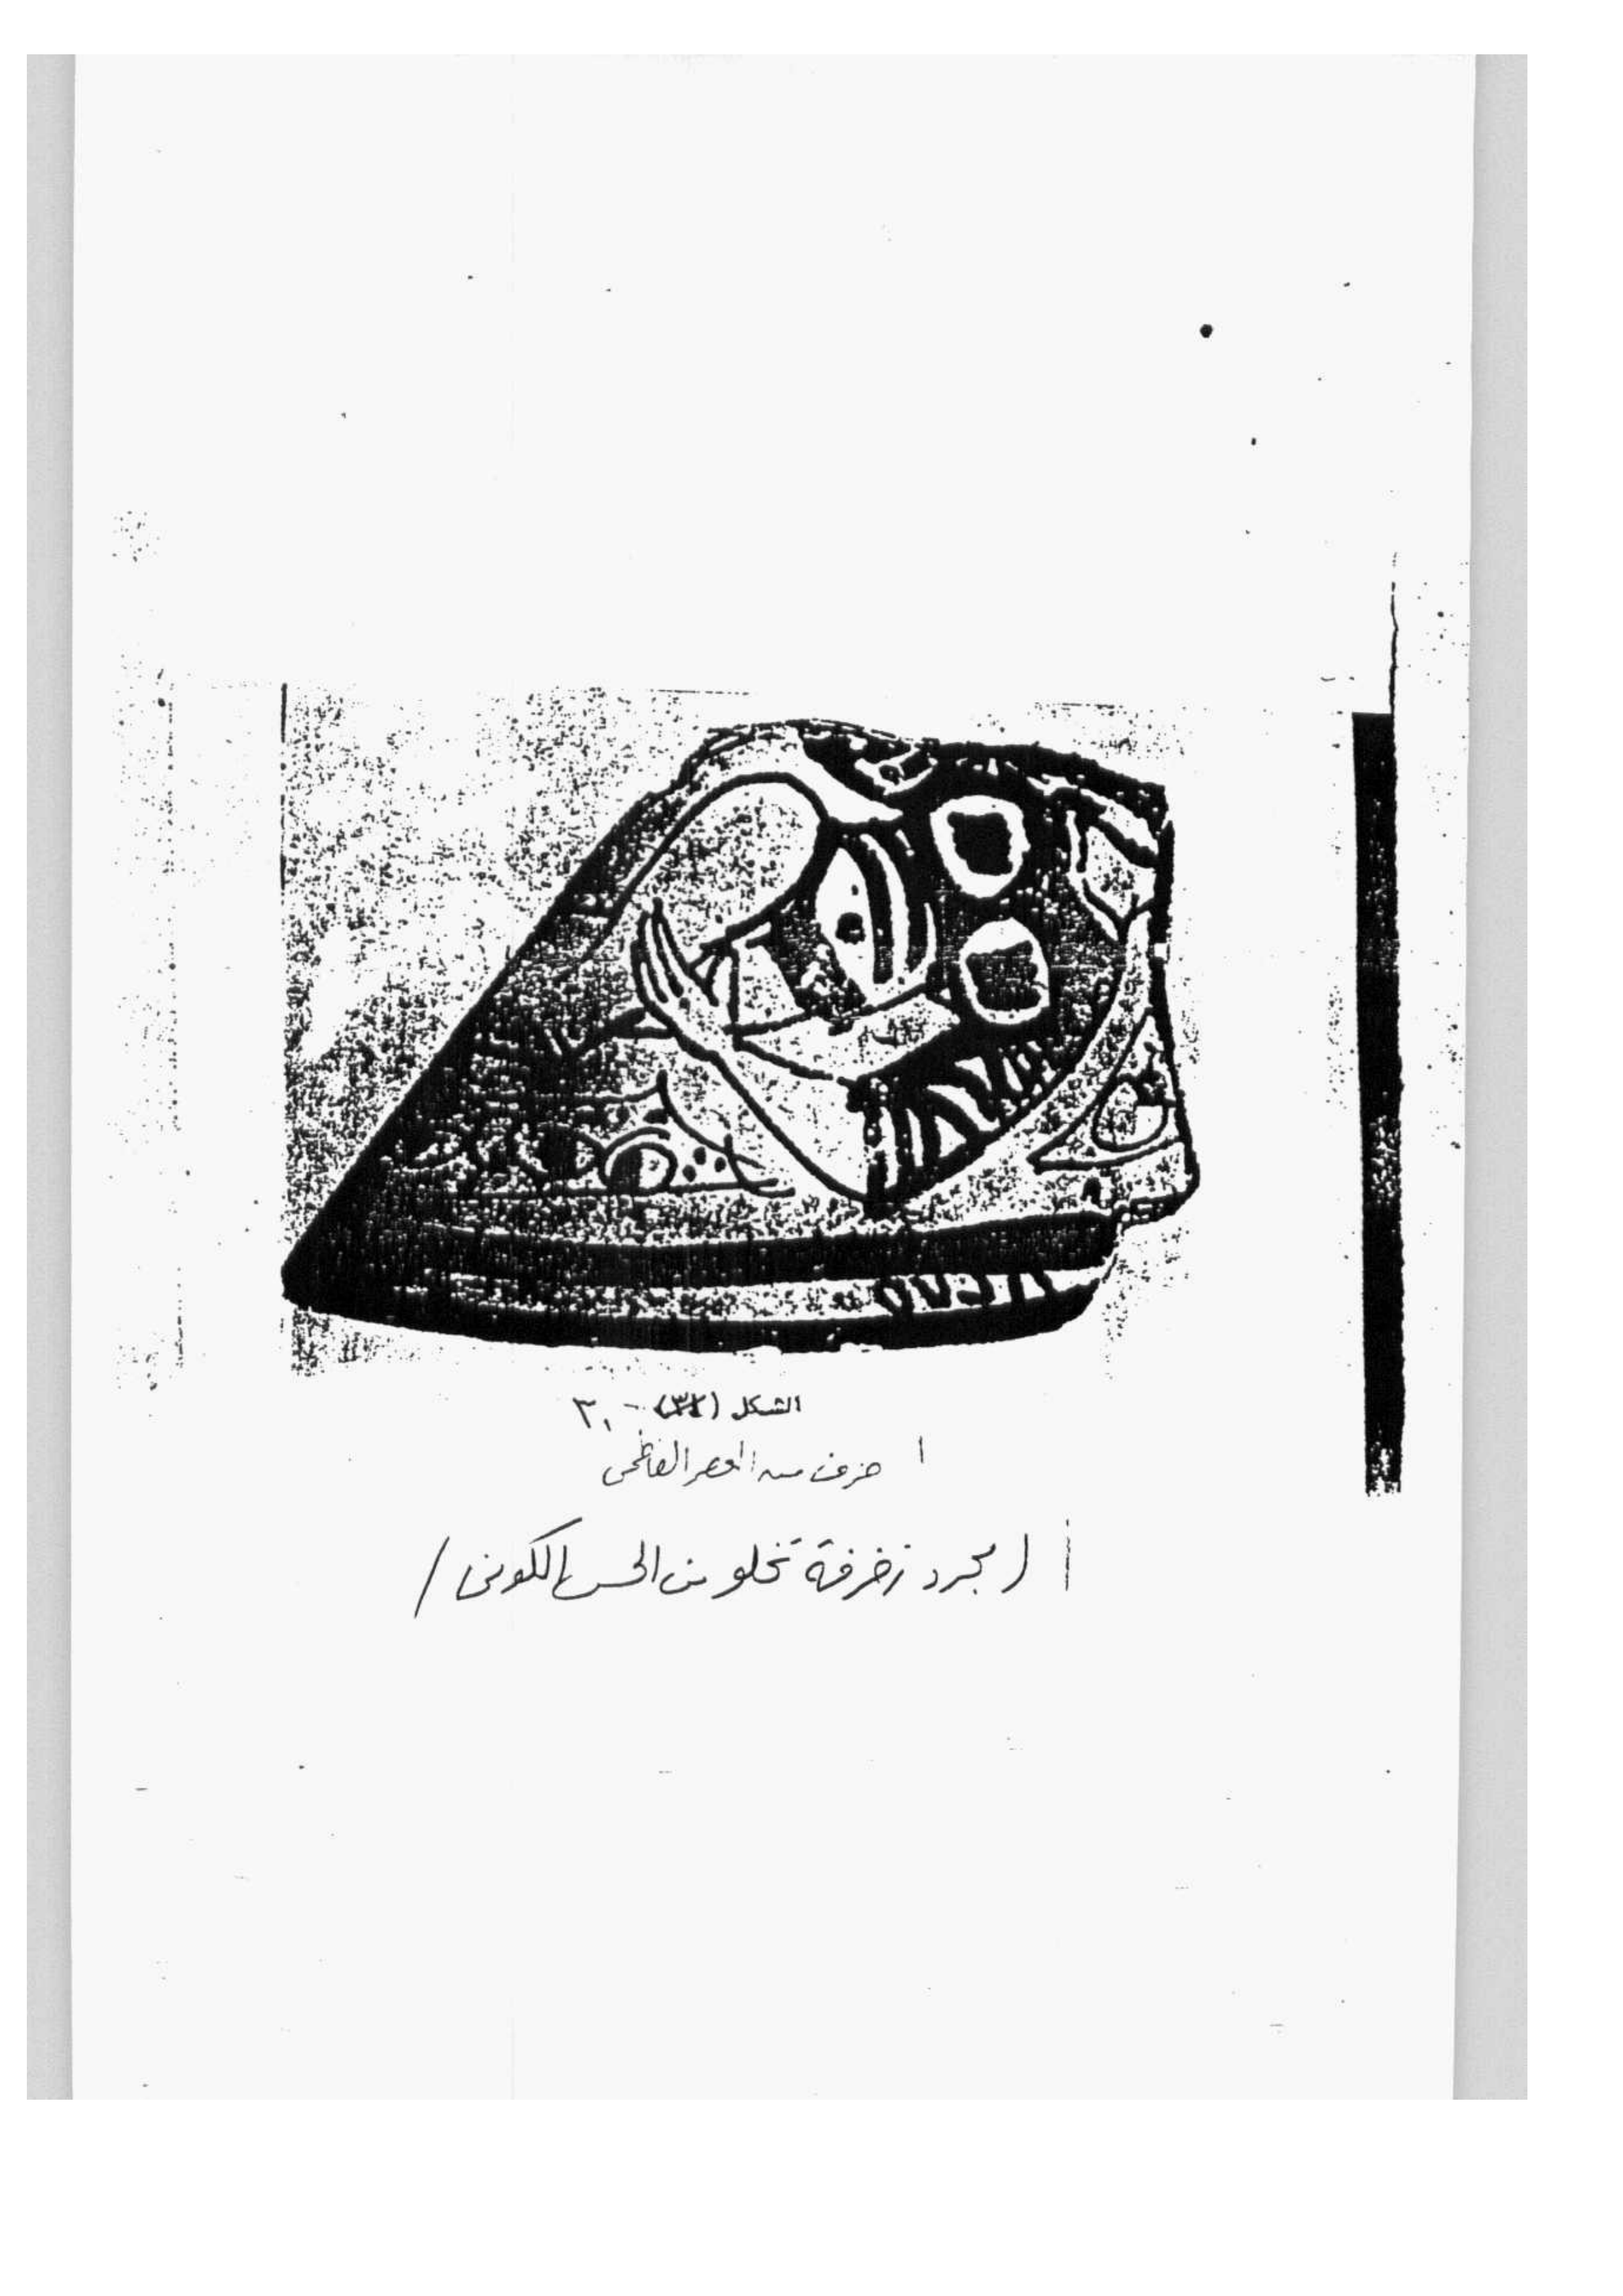 الشكل (٣٢) - ٣٠
خزف من العصر الفاطمي
أ ( مجرد زخرفة تخلو من الحس الكوني /